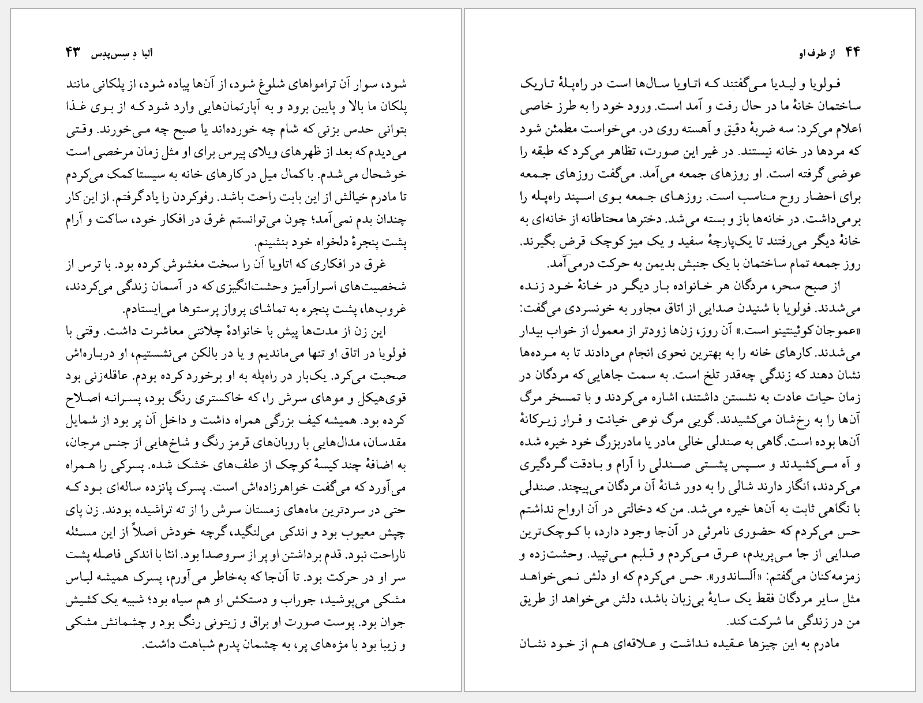 آلبا دِ سِس‌پدِس ۴۳
شود، سوار آن ترامواهای شلوغ شود، از آن‌ها پیاده شود، از پلکانی مانند
پلکان ما بالا و پایین برود و به آپارتمان‌هایی وارد شود که از بوی غذا
بتوانی حدس بزنی که شام چه خورده‌اند یا صبح چه می‌خورند. وقتی
می‌دیدم که بعد از ظهرهای ویلای پیرس برای او مثل زمان مرخصی است
خوشحال می‌شدم. با کمال میل در کارهای خانه به سیستا کمک می‌کردم
تا مادرم خیالش از این بابت راحت باشد. رفوکردن را یاد گرفتم. از این کار
چندان بدم نمی‌آمد؛ چون می‌توانستم غرق در افکار خود، ساکت و آرام
پشت پنجرهٔ دلخواه خود بنشینم.
غرق در افکاری که اتاویا آن را سخت مغشوش کرده بود. با ترس از
شخصیت‌های اسرارآمیز وحشت‌انگیزی که در آسمان زندگی می‌کردند،
غروب‌ها، پشت پنجره به تماشای پرواز پرستوها می‌ایستادم.
این زن از مدت‌ها پیش با خانوادهٔ چلانتی معاشرت داشت. وقتی با
فولویا در اتاق او تنها می‌ماندیم و یا در بالکن می‌نشستیم، او درباره‌اش
صحبت می‌کرد. یک‌بار در راه‌پله به او برخورد کرده بودم. عاقله‌زنی بود
قوی‌هیکل و موهای سرش را، که خاکستری رنگ بود، پسرانه اصلاح
کرده بود. همیشه کیف بزرگی همراه داشت و داخل آن پر بود از شمایل
مقدسان، مدال‌هایی با روبان‌های قرمز رنگ و شاخ‌هایی از جنس مرجان،
به اضافهٔ چند کیسهٔ کوچک از علف‌های خشک شده. پسرکی را همراه
می‌آورد که می‌گفت خواهرزاده‌اش است. پسرک پانزده ساله‌ای بود که
حتی در سردترین ماه‌های زمستان سرش را از ته تراشیده بودند. زن پای
چپش معیوب بود و اندکی می‌لنگید، گرچه خودش اصلاً از این مسئله
ناراحت نبود. قدم برداشتن او پر از سروصدا بود. انئا با اندکی فاصله پشت
سر او در حرکت بود. تا آن‌جا که به‌خاطر می‌آورم، پسرک همیشه لباس
مشکی می‌پوشید، جوراب و دستکش او هم سیاه بود؛ شبیه یک کشیش
جوان بود. پوست صورت او براق و زیتونی رنگ بود و چشمانش مشکی
و زیبا بود با مژه‌های پر، به چشمان پدرم شباهت داشت.
۴۴ از طرف او
فولویا و لیدیا می‌گفتند که اتاویا سال‌ها است در راه‌پلهٔ تاریک
ساختمان خانهٔ ما در حال رفت و آمد است. ورود خود را به طرز خاصی
اعلام می‌کرد: سه ضربهٔ دقیق و آهسته روی در. می‌خواست مطمئن شود
که مردها در خانه نیستند. در غیر این صورت، تظاهر می‌کرد که طبقه را
عوضی گرفته است. او روزهای جمعه می‌آمد. می‌گفت روزهای جمعه
برای احضار روح مناسب است. روزهای جمعه بوی اسپند راه‌پله را
برمی‌داشت. در خانه‌ها باز و بسته می‌شد. دخترها محتاطانه از خانه‌ای به
خانهٔ دیگر می‌رفتند تا یک‌پارچهٔ سفید و یک میز کوچک قرض بگیرند.
روز جمعه تمام ساختمان با یک جنبش بدیمن به حرکت درمی‌آمد.
از صبح سحر، مردگان هر خانواده بار دیگر در خانهٔ خود زنده
می‌شدند. فولویا با شنیدن صدایی از اتاق مجاور به خونسردی می‌گفت:
«عموجان کوئینتینو است.» آن روز، زن‌ها زودتر از معمول از خواب بیدار
می‌شدند. کارهای خانه را به بهترین نحوی انجام می‌دادند تا به مرده‌ها
نشان دهند که زندگی چه‌قدر تلخ است. به سمت جاهایی که مردگان در
زمان حیات عادت به نشستن داشتند، اشاره می‌کردند و با تمسخر مرگ
آن‌ها را به رخ‌شان می‌کشیدند. گویی مرگ نوعی خیانت و فرار زیرکانهٔ
آن‌ها بوده است. گاهی به صندلی خالی مادر یا مادربزرگ خود خیره شده
و آه می‌کشیدند و سپس پشتی صندلی را آرام و بادقت گردگیری
می‌کردند، انگار دارند شالی را به دور شانهٔ آن مردگان می‌پیچند. صندلی
با نگاهی ثابت به آن‌ها خیره می‌شد. من که دخالتی در آن ارواح نداشتم
حس می‌کردم که حضوری نامرئی در آن‌جا وجود دارد، با کوچک‌ترین
صدایی از جا می‌پریدم، عرق می‌کردم و قلبم می‌تپید. وحشت‌زده و
زمزمه‌کنان می‌گفتم: «آلساندور». حس می‌کردم که او دلش نمی‌خواهد
مثل سایر مردگان فقط یک سایهٔ بی‌زبان باشد، دلش می‌خواهد از طریق
من در زندگی ما شرکت کند.
مادرم به این چیزها عقیده نداشت و علاقه‌ای هم از خود نشان